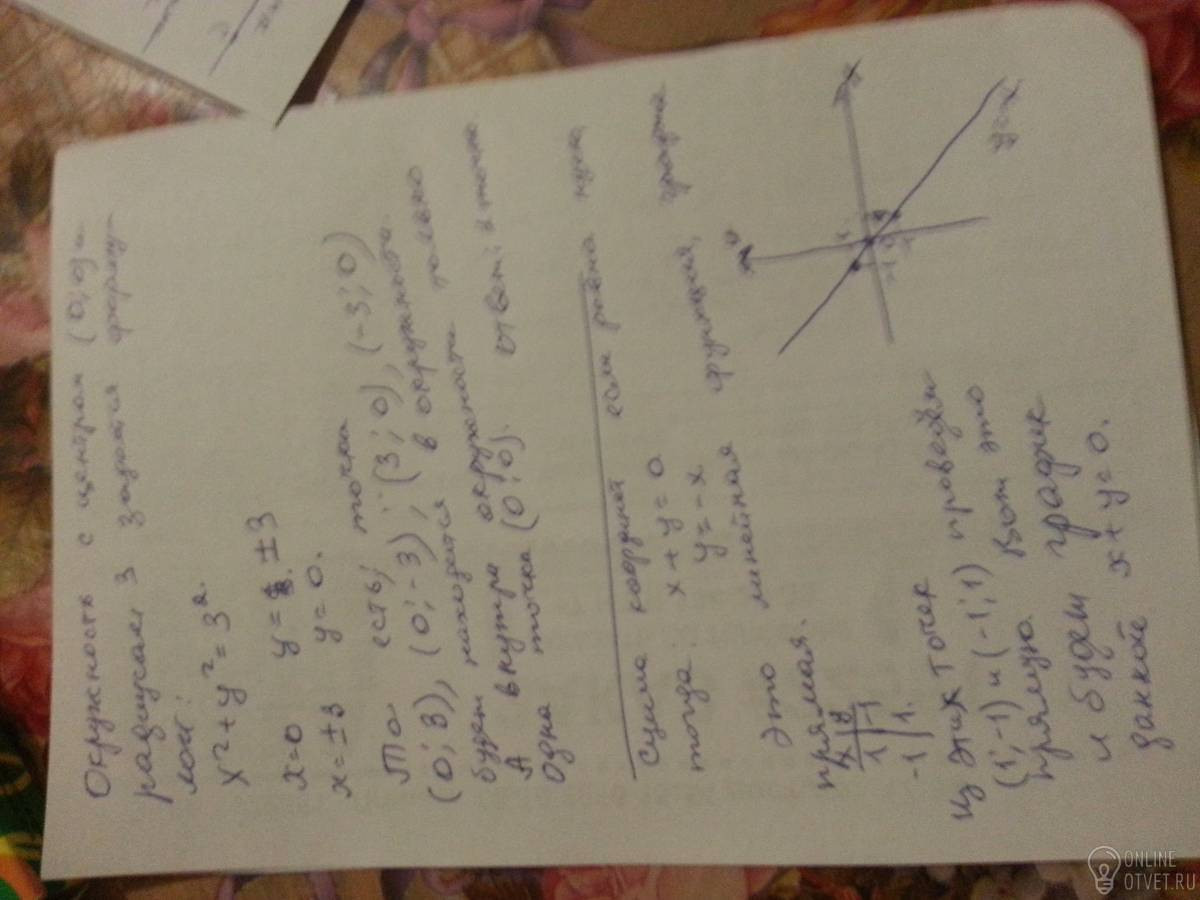 Окружность с центром (0;0) и
радиусом 3 задаётся форму-
лой:
x²+y²=3².
x=0 y=±3
x=±3 y=0.
То есть; точки
(0;3), (0;-3), (3;0), (-3;0)
будет находится в окружности.
А внутри окружности только
Одна точка (0;0). Ответ: 5 точек.
Сумма координат если равна нулю,
тогда: x+y=0
y=-x
Это линейная функция, график
прямая.
x | y
1 | -1
-1 | 1.
Из этих точек
(1;-1) и (-1;1) проведём
прямую. Вот это
и будет график
данной x+y=0.
y
x
1
-1
0
1
y=-x
ONLINE
OTVET.RU